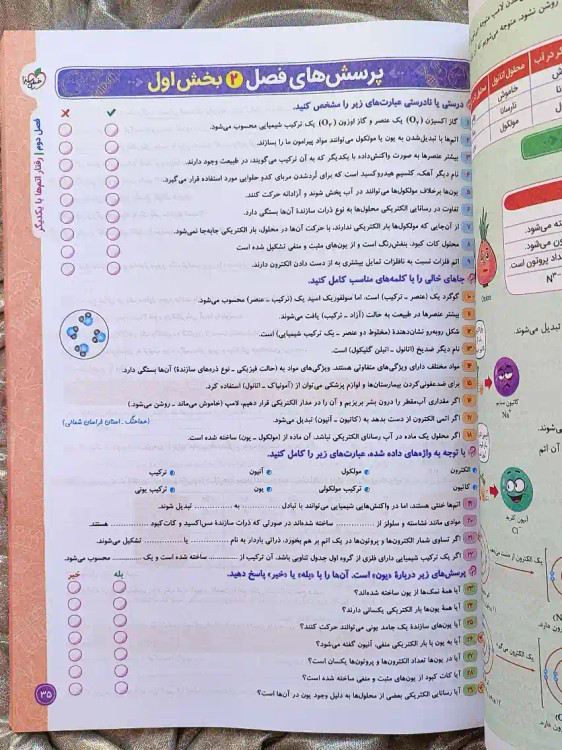 پرسش‌های فصل ۲ بخش اول
درستی یا نادرستی عبارت‌های زیر را مشخص کنید.
۱ گاز اکسیژن (O۲) یک عنصر و گاز اوزون (O۳) یک ترکیب شیمیایی محسوب می‌شود.
۲ اتم‌ها با تبدیل‌شدن به یون یا مولکول می‌توانند مواد پیرامون ما را بسازند.
۳ بیشتر عنصرها به صورت واکنش‌داده با یکدیگر که به آن ترکیب می‌گویند، در طبیعت وجود دارند.
۴ نام دیگر آهک، کلسیم هیدروکسید است که برای تُردشدن مربای کدو حلوایی مورد استفاده قرار می‌گیرد.
۵ یون‌ها برخلاف مولکول‌ها می‌توانند در آب پخش شوند و آزادانه حرکت کنند.
۶ تفاوت در رسانایی الکتریکی محلول‌ها به نوع ذرات سازندهٔ آن‌ها بستگی دارد.
۷ از آن‌جایی که مولکول‌ها بار الکتریکی ندارند، با حرکت آن‌ها در محلول، بار الکتریکی جابه‌جا نمی‌شود.
۸ محلول کات کبود، بنفش‌رنگ است و از یون‌های مثبت و منفی تشکیل شده است
۹ اتم فلزات نسبت به نافلزات تمایل بیشتری به از دست دادن الکترون دارند.
جاهای خالی را با کلمه‌های مناسب کامل کنید.
۱۰ گوگرد یک (عنصر ـ ترکیب) است، اما سولفوریک اسید یک (ترکیب ـ عنصر) محسوب می‌شود.
۱۱ بیشتر عنصرها در طبیعت به حالت (آزاد ـ ترکیب) یافت می‌شوند.
۱۲ شکل روبه‌رو نشان‌دهندهٔ (مخلوط دو عنصر ـ یک ترکیب شیمیایی) است.
۱۳ نام دیگر ضدیخ (اتانول ـ اتیلن گلیکول) است.
۱۴ مواد مختلف دارای ویژگی‌های متفاوتی هستند. ویژگی‌های مواد به (حالت فیزیکی ـ نوع ذره‌های سازنده) آن‌ها بستگی دارد.
۱۵ برای ضدعفونی کردن بیمارستان‌ها و لوازم پزشکی می‌توان از (آمونیاک ـ اتانول) استفاده کرد.
۱۶ اگر مقداری آب‌مقطر را درون بشر بریزیم و آن را در مدار الکتریکی قرار دهیم، لامپ (خاموش می‌ماند ـ روشن می‌شود).
۱۷ اگر اتمی الکترون از دست بدهد به (کاتیون ـ آنیون) تبدیل می‌شود. (هماهنگ ـ استان خراسان شمالی)
۱۸ اگر محلول یک ماده در آب رسانای الکتریکی نباشد، آن ماده از (مولکول ـ یون) ساخته شده است.
با توجه به واژه‌های داده شده، عبارت‌های زیر را کامل کنید.
الکترون مولکول آنیون ترکیب
کاتیون ترکیب مولکولی یون ترکیب یونی
۱۹ اتم‌ها خنثی هستند، اما در واکنش‌هایی شیمیایی می‌توانند با تبادل ........ به ........ تبدیل شوند.
۲۰ موادی مانند نشاسته و سلولز از ........ ساخته شده‌اند در صورتی که ذرات سازندهٔ مس‌اکسید و کات‌کبود ........ هستند.
۲۱ اگر تساوی شمار الکترون‌ها و پروتون‌ها در یک اتم بر هم بخورد، ذراتی باردار به نام ........ یا ........ تشکیل می‌شوند.
۲۲ اگر یک ترکیب شیمیایی دارای فلزی از گروه اول جدول تناوبی باشد، آن ترکیب از ........ ساخته شده است و یک ........ محسوب می‌شود.
پرسش‌های زیر دربارهٔ «یون» است. آن‌ها را با «بله» یا «خیر» پاسخ دهید.
بله خیر
۲۳ آیا همهٔ نمک‌ها از یون ساخته شده‌اند؟
۲۴ آیا همهٔ یون‌ها بار الکتریکی یکسانی دارند؟
۲۵ آیا یون‌های سازندهٔ یک جامد یونی می‌توانند حرکت کنند؟
۲۶ آیا به یون با بار الکتریکی منفی، آنیون گفته می‌شود؟
۲۷ آیا در یون‌ها تعداد الکترون‌ها و پروتون‌ها یکسان است؟
۲۸ آیا کات کبود از یون‌های مثبت و منفی ساخته شده است؟
۲۹ آیا رسانایی الکتریکی بعضی از محلول‌ها به دلیل وجود یون در آن‌ها است؟
فصل دوم | رفتار اتم‌ها با یکدیگر
۳۵
محلول اتانول
خاموش
نارسان
مولکول
تبدیل می‌شوند.